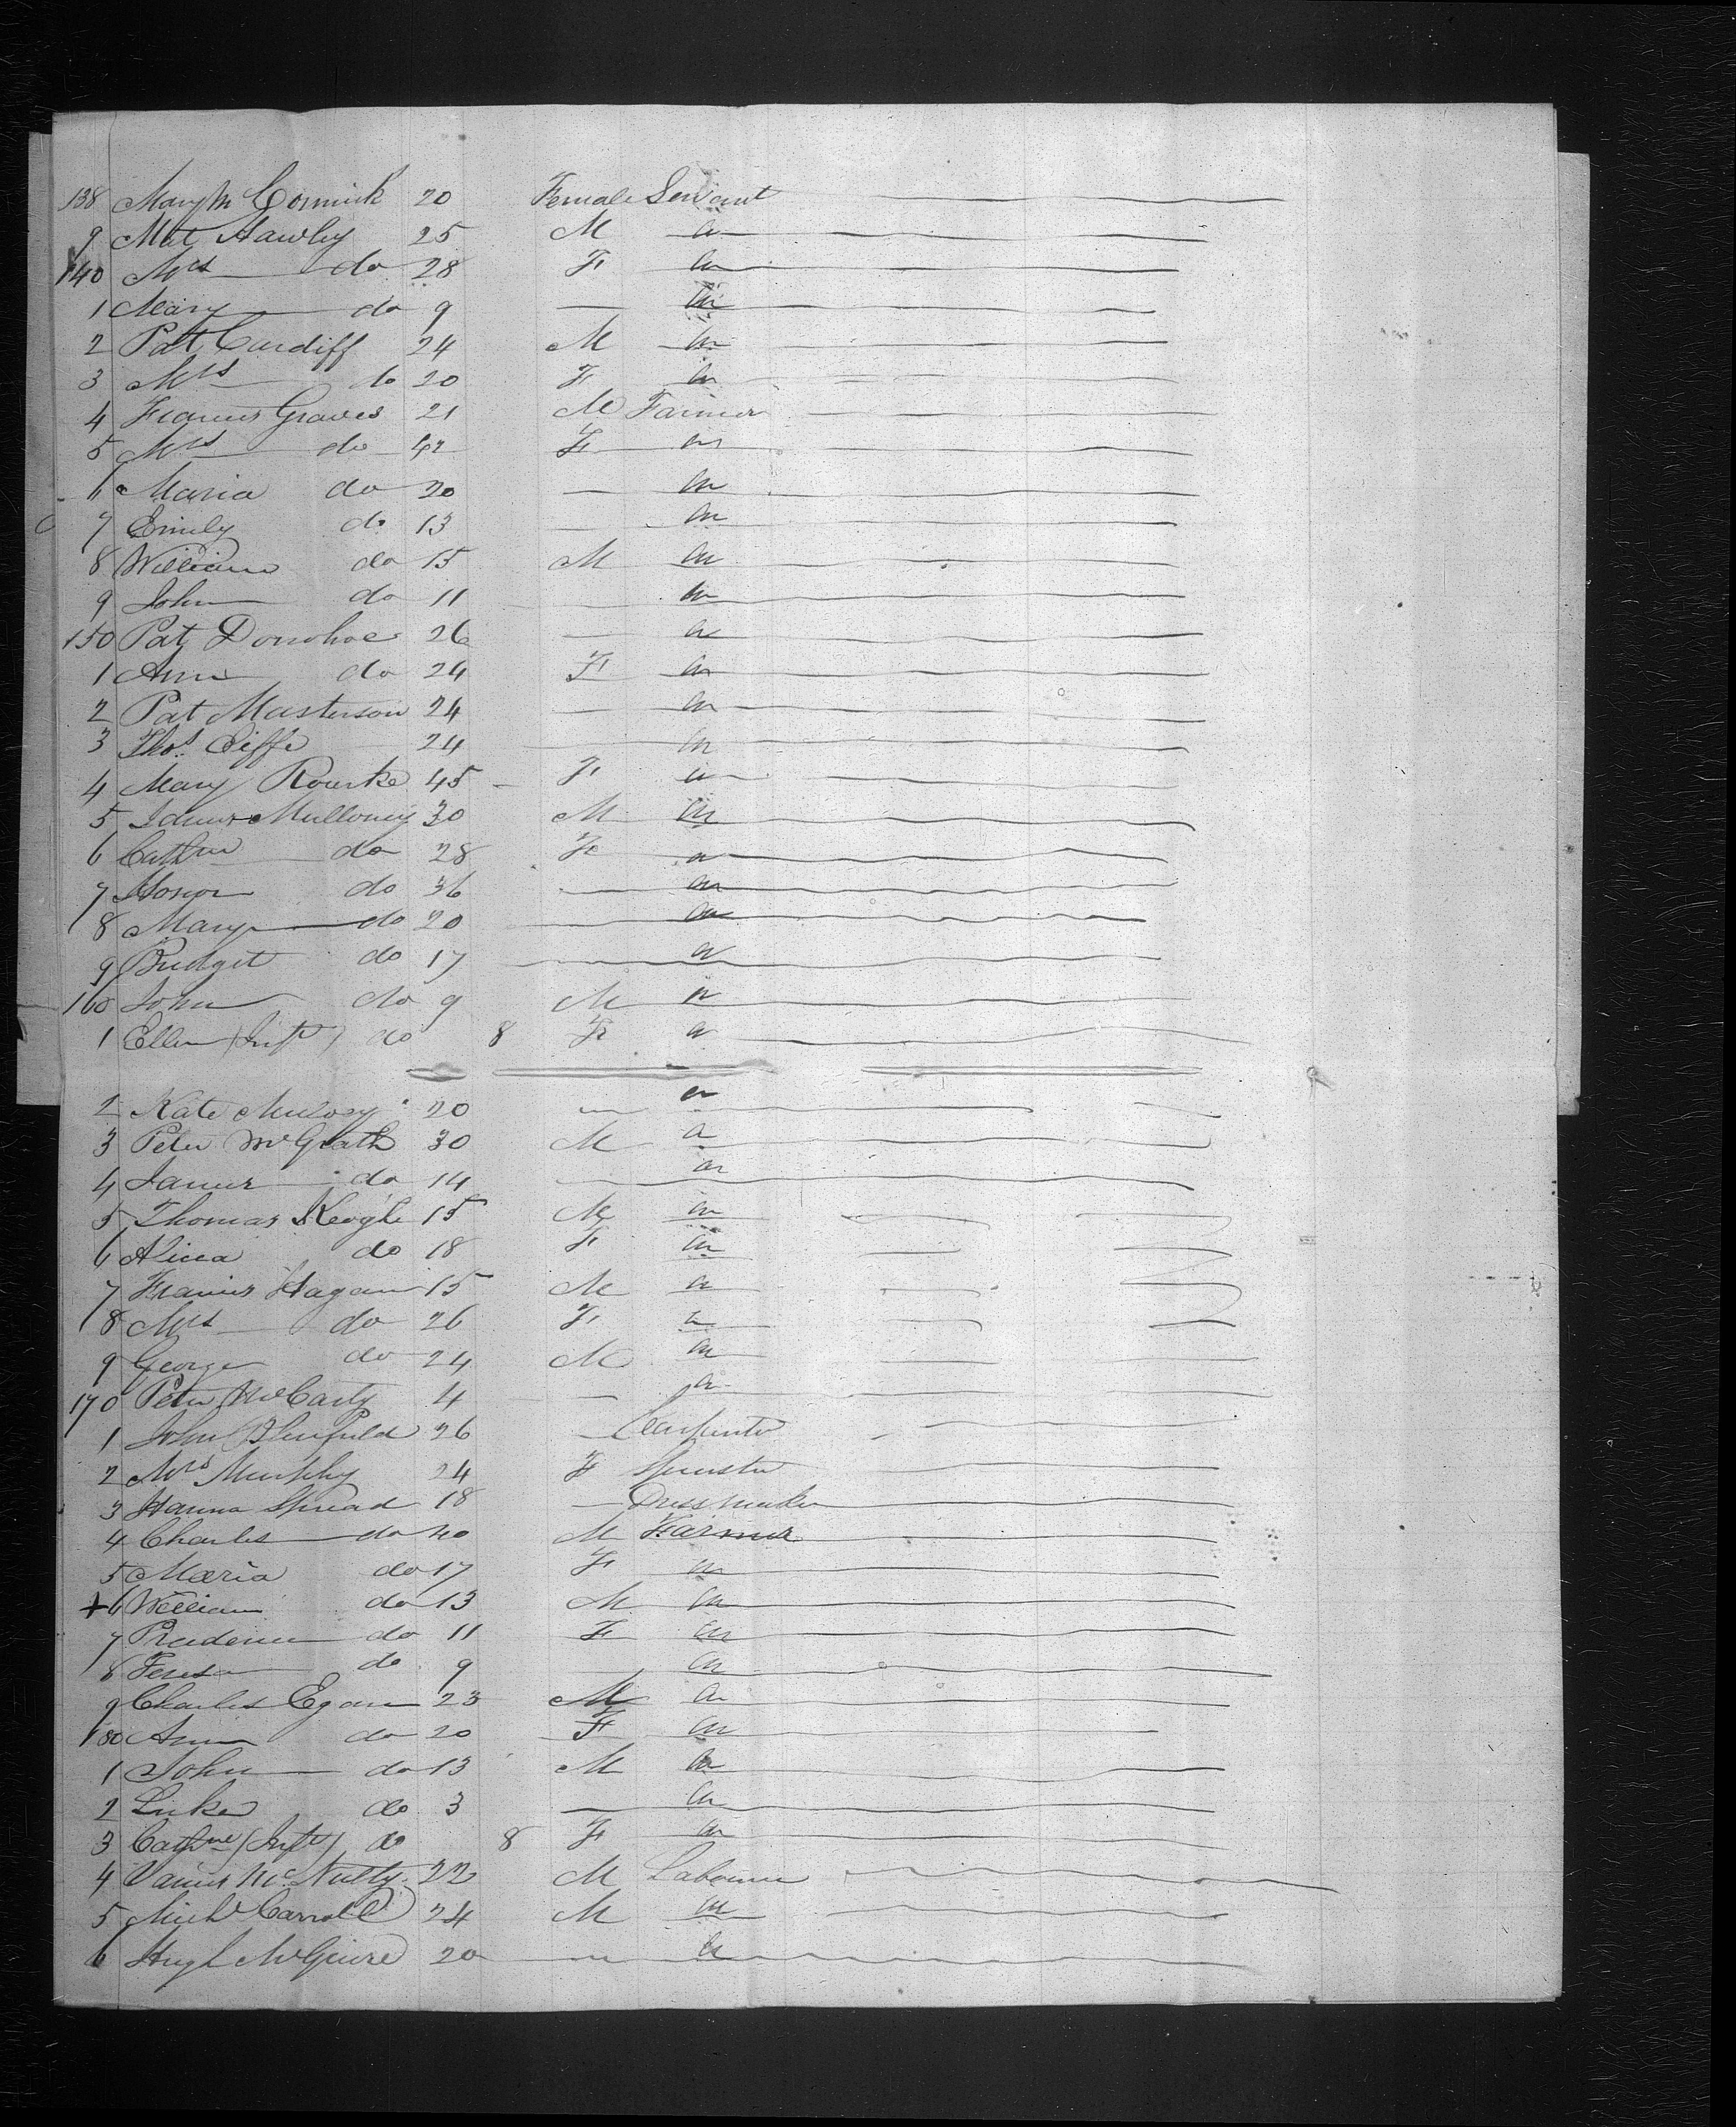 138 Mary McCormick 20 Female Servant
9 Mat Hawley 25 M
140 Mrs do 28 F
1 Mary do 9
2 Pat Cardiff 24 M
3 Mrs do 20 F
4 Francis Graves 21 M Farmer
5 Mrs do 42 F
6 Maria do 20
7 Emily do 13
8 William do 15 M
9 John do 11
150 Pat Donohoe 26
1 Ann do 24 F
2 Pat Masterson 24
3 Thos. 24
4 Mary Rourke 45 F
5 James Mulloney 30 M
6 do 28 F
7 Honor do 36
8 Mary do 20
9 Bridget do 17
160 John do 9 M
1 Ellen (Inft) do 8 F
2 Kate 20
3 Peter McGrath 30 M
4 James do 14
5 Thomas Keogh 15 M
6 do 18 F
7 Francis Hagan 15 M
8 Mrs do 26 F
9 George do 24 M
170 Peter McCarty 4
1 John 26 Carpenter
2 Mrs Murphy 24 F Spinster
3 Hanna 18 Dressmaker
4 Charles do 40 M Farmer
5 Maria do 17 F
+ 6 William do 13 M
7 Prudence do 11 F
8 Teresa do 9
9 Charles Egan 23 M
180 Ann do 20 F
1 John do 13 M
2 Luke do 3
3 (Inft) do 8 F
4 James McNulty 22 M Labourer
5 Michl Carroll 24 M
6 Hugh McGuire 20